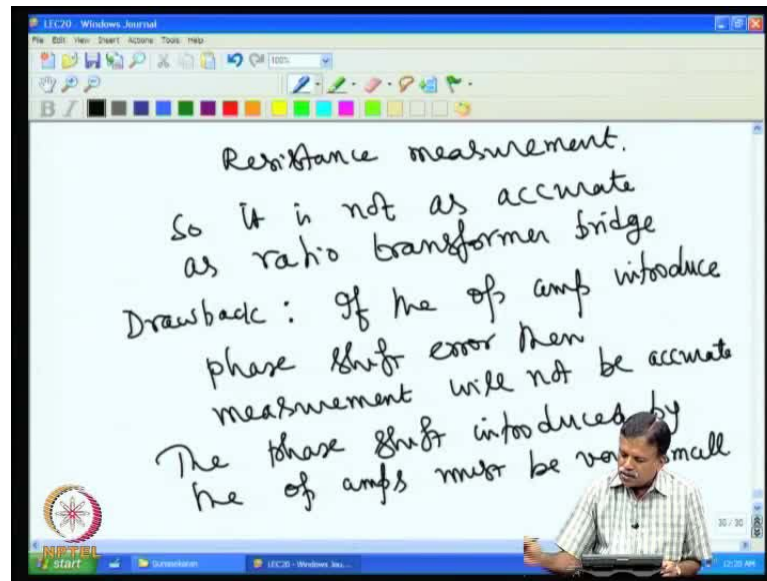 LEC20 - Windows Journal
File Edit View Insert Actions Tools Help
100%
B I
Resistance measurement.
So it is not as accurate
as ratio transformer bridge
Drawback: If the op amp introduce
phase shift error then
measurement will not be accurate
The phase shift introduced by
the op amps must be very small
30 / 30
NPTEL
start
Gunasekaran
LEC20 - Windows Jou...
12:20 AM